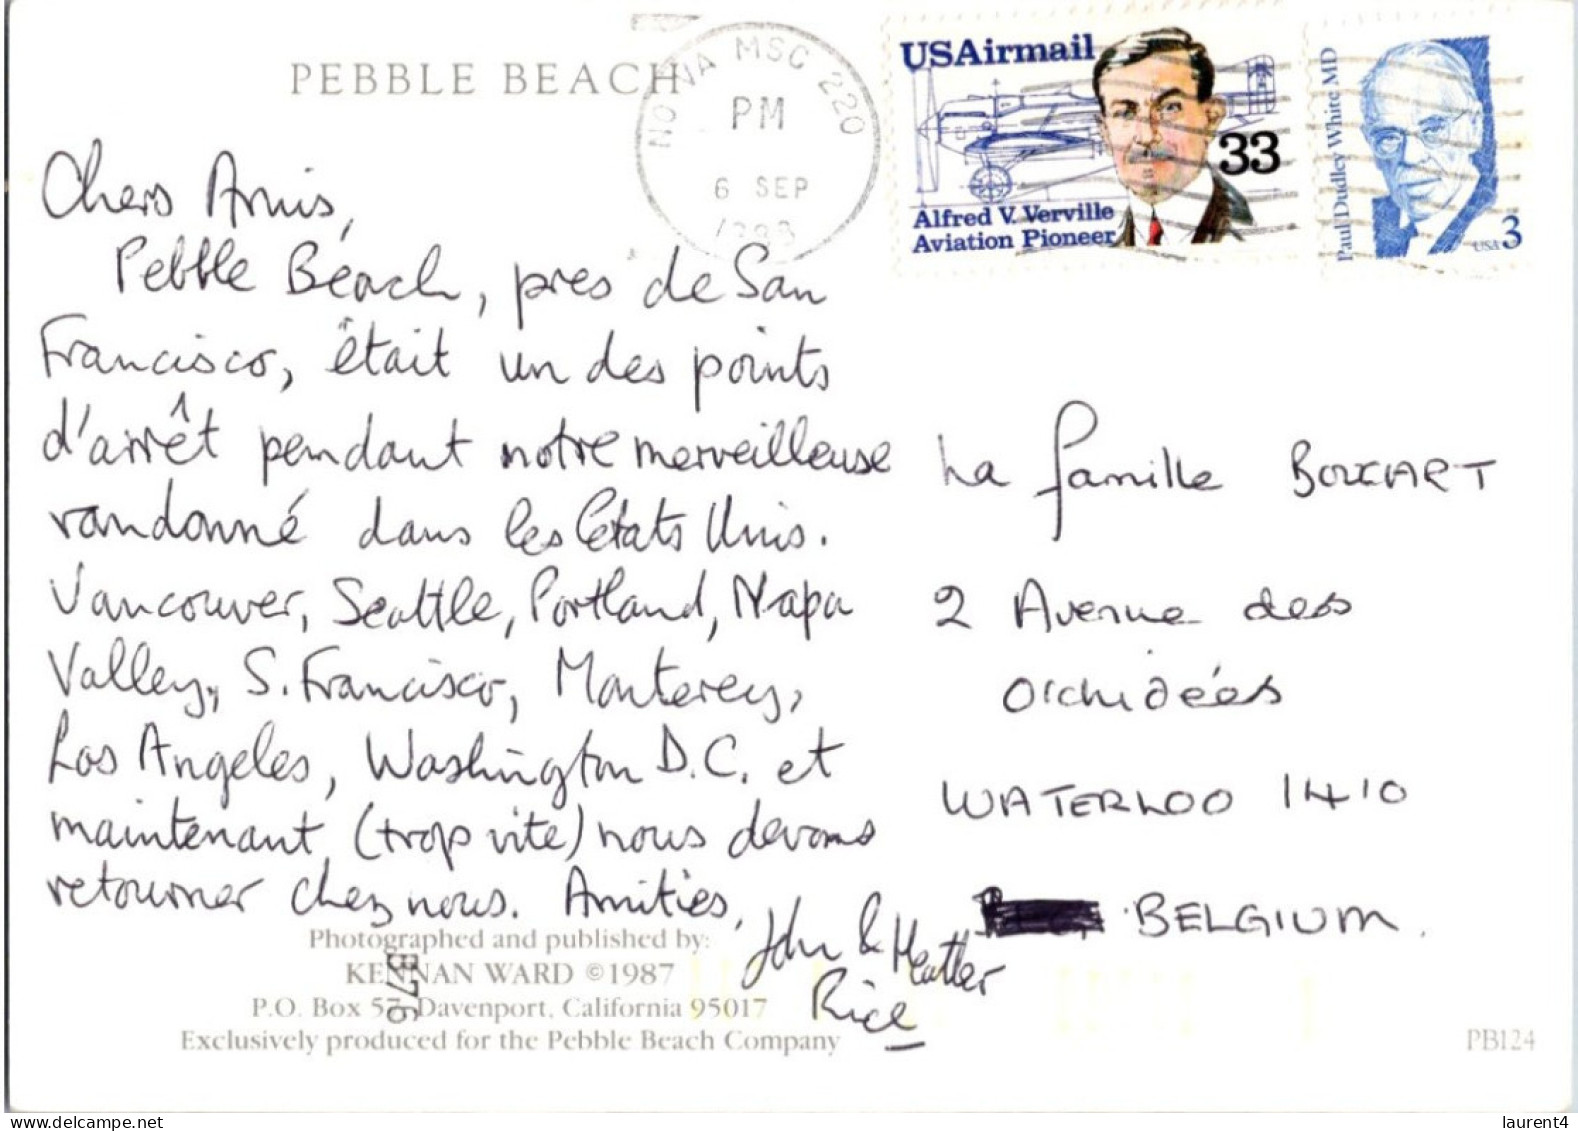 PEBBLE BEACH
NO VA MSC 220
PM
6 SEP
USAirmail
33
Alfred V. Verville
Aviation Pioneer
Paul Dudley White MD
USA 3
Chers Amis,
Pebble Beach, près de San
Francisco, était un des points
d'arrêt pendant notre merveilleuse
randonné dans les États Unis.
Vancouver, Seattle, Portland, Napa
Valley, S. Francisco, Monterey,
Los Angeles, Washington D.C. et
maintenant (trop vite) nous devons
retourner chez nous. Amitiés,
John & Heather
Rice
La famille BOUCHART
2 Avenue des
Orchidées
WATERLOO 1410
BELGIUM.
Photographed and published by:
KENNAN WARD ©1987
P.O. Box 57, Davenport, California 95017
Exclusively produced for the Pebble Beach Company
B76
PB124
laurent4